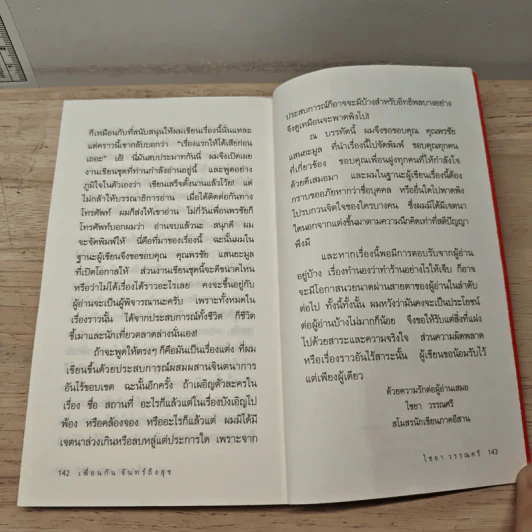 ก็เหมือนกับที่สนับสนุนให้ผมเขียนเรื่องนี้นั่นแหละ
แต่คราวนี้เขากลับบอกว่า "เรื่องแรกให้ได้เสียก่อน
เถอะ" เฮ้ นี่มันสบประมาทกันนี่ ผมจึงเปิดเผย
งานเขียนชุดที่ท่านกำลังอ่านอยู่นี้ และพูดอย่าง
ภูมิใจในตัวเองว่า เขียนเสร็จตั้งนานแล้วโว้ย! แต่
ไม่กล้าให้บรรณาธิการอ่าน เมื่อได้ติดต่อกันทาง
โทรศัพท์ ผมก็ส่งให้เขาอ่าน ไม่กี่วันเพื่อนพรชัยก็
โทรศัพท์บอกผมว่า อ่านจบแล้วนะ สนุกดี ผม
จะจัดพิมพ์ให้ นี่คือที่มาของเรื่องนี้ ฉะนั้นผมใน
ฐานะผู้เขียนจึงขอขอบคุณ คุณพรชัย แสนยะมูล
ที่เปิดโอกาสให้ ส่วนงานเขียนชุดนี้จะดีขนาดไหน
หรือว่าไม่ได้เรื่องได้ราวอะไรเลย คงจะขึ้นอยู่กับ
ผู้อ่านจะเป็นผู้พิจารณานะครับ เพราะทั้งหมดใน
เรื่องราวนั้น ได้จากประสบการณ์ทั้งชีวิต ก็ชีวิต
ขี้เมาและนักเที่ยวตลาดล่างนั่นเอง!
ถ้าจะพูดให้ตรงๆ ก็คือมันเป็นเรื่องแต่ง ที่ผม
เขียนขึ้นด้วยประสบการณ์ผสมผสานจินตนาการ
อันไร้ขอบเขต ฉะนั้นอีกครั้ง ถ้าเผอิญตัวละครใน
เรื่อง ชื่อ สถานที่ อะไรก็แล้วแต่ในเรื่องบังเอิญไป
พ้อง หรือคล้องจอง หรืออะไรก็แล้วแต่ ผมมิได้มี
เจตนาล่วงเกินหรือลบหลู่แต่ประการใด เพราะจาก
142 เพื่อนกัน จันทร์ถึงสุข
ประสบการณ์ก็อาจจะมีบ้างสำหรับอิทธิพลบางอย่าง
จึงดูเหมือนจะพาดพิงไป!
ณ บรรทัดนี้ ผมจึงขอขอบคุณ คุณพรชัย
แสนยะมูล ที่นำเรื่องนี้ไปจัดพิมพ์ ขอบคุณทุกคน
ที่เกี่ยวข้อง ขอบคุณเพื่อนฝูงทุกคนที่ให้กำลังใจ
ด้วยดีเสมอมา และผมในฐานะผู้เขียนเรื่องนี้ต้อง
กราบขออภัยหากว่าชื่อบุคคล หรืออื่นใดไปพาดพิง
ไปรบกวนจิตใจของใครบางคน ซึ่งผมมิได้มีเจตนา
ใดนอกจากแต่งขึ้นมาตามความนึกคิดเท่าที่สติปัญญา
พึงมี
และหากเรื่องนี้พอมีการตอบรับจากผู้อ่าน
อยู่บ้าง เรื่องทำนองว่าทำร้านอย่างไรให้เจ๊ง ก็อาจ
จะมีโอกาสนวยนาดผ่านสายตาของผู้อ่านในลำดับ
ต่อไป ทั้งนี้ทั้งนั้น ผมหวังว่ามันคงจะเป็นประโยชน์
ต่อผู้อ่านบ้างไม่มากก็น้อย จึงขอให้รับแต่สิ่งที่แฝง
ไปด้วยสาระและความจริงใจ ส่วนความผิดพลาด
หรือเรื่องราวอันไร้สาระนั้น ผู้เขียนขอน้อมรับไว้
แต่เพียงผู้เดียว
ด้วยความรักต่อผู้อ่านเสมอ
ไชยา วรรณศรี
สโมสรนักเขียนภาคอีสาน
ไชยา วรรณศรี 143